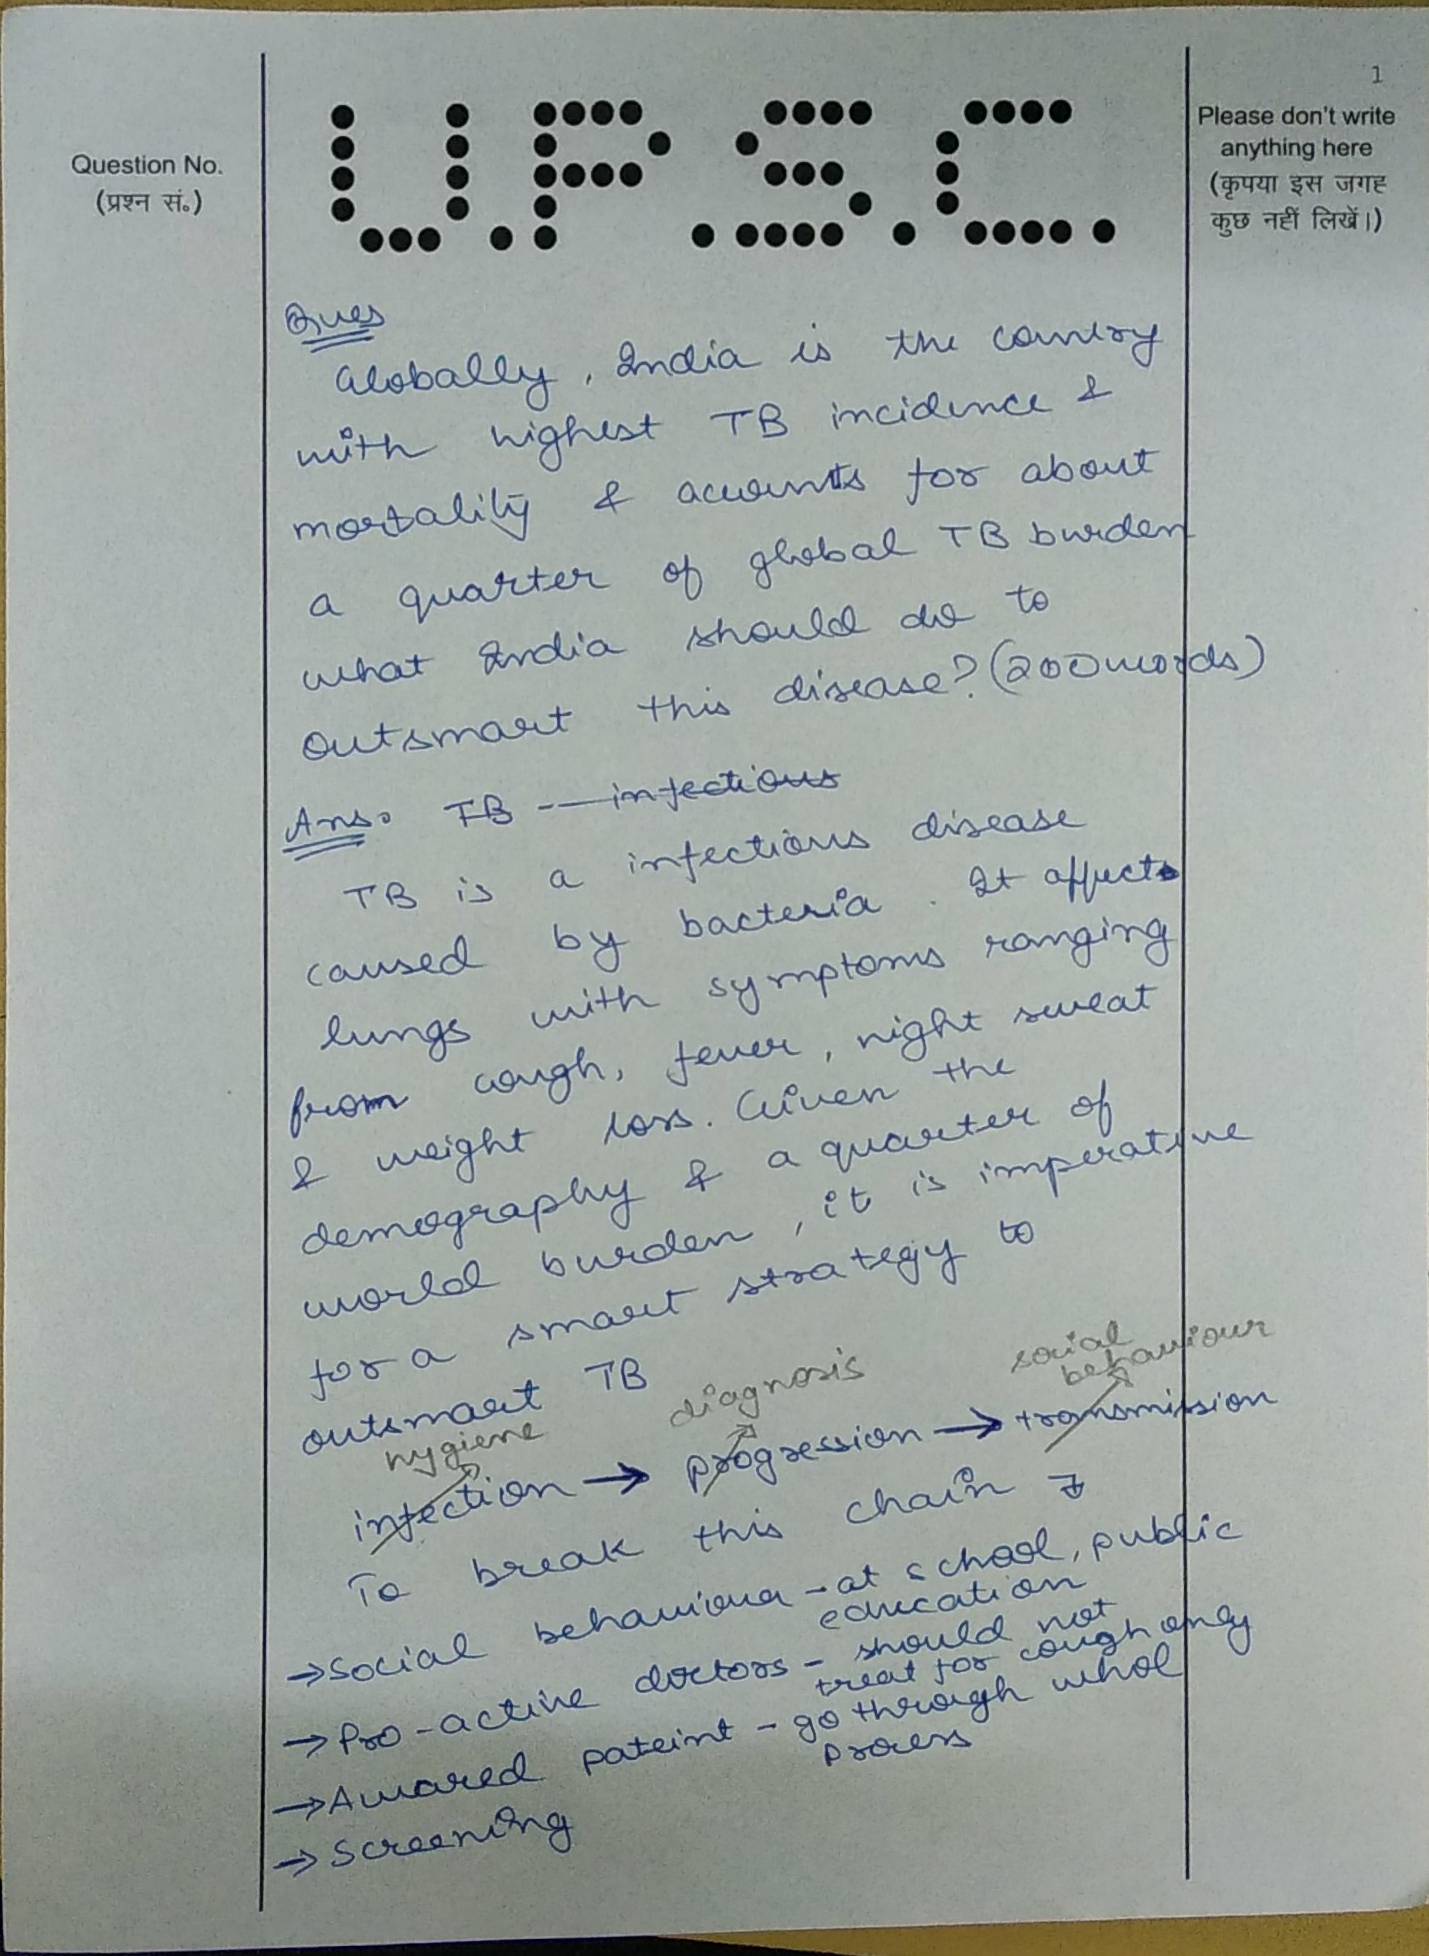 1
Question No.
(प्रश्न सं॰)
U.P.S.C.
Please don't write
anything here
(कृपया इस जगह
कुछ नहीं लिखें।)
Ques
Globally, India is the country
with highest TB incidence &
mortality & accounts for about
a quarter of global TB burden
what India should do to
outsmart this disease? (200 words)
Ans. TB -- infectious
TB is a infectious disease
caused by bacteria. It affects
lungs with symptoms ranging
from cough, fever, night sweat
& weight loss. Given the
demography & a quarter of
world burden, it is imperative
for a smart strategy to
outsmart TB
hygiene diagnosis social behaviour
infection → progression → transmission
To break this chain
→ Social behaviour - at school, public
education
→ Pro-active doctors - should not
treat for cough only
→ Awared pateint - go through whol
process
→ Screening